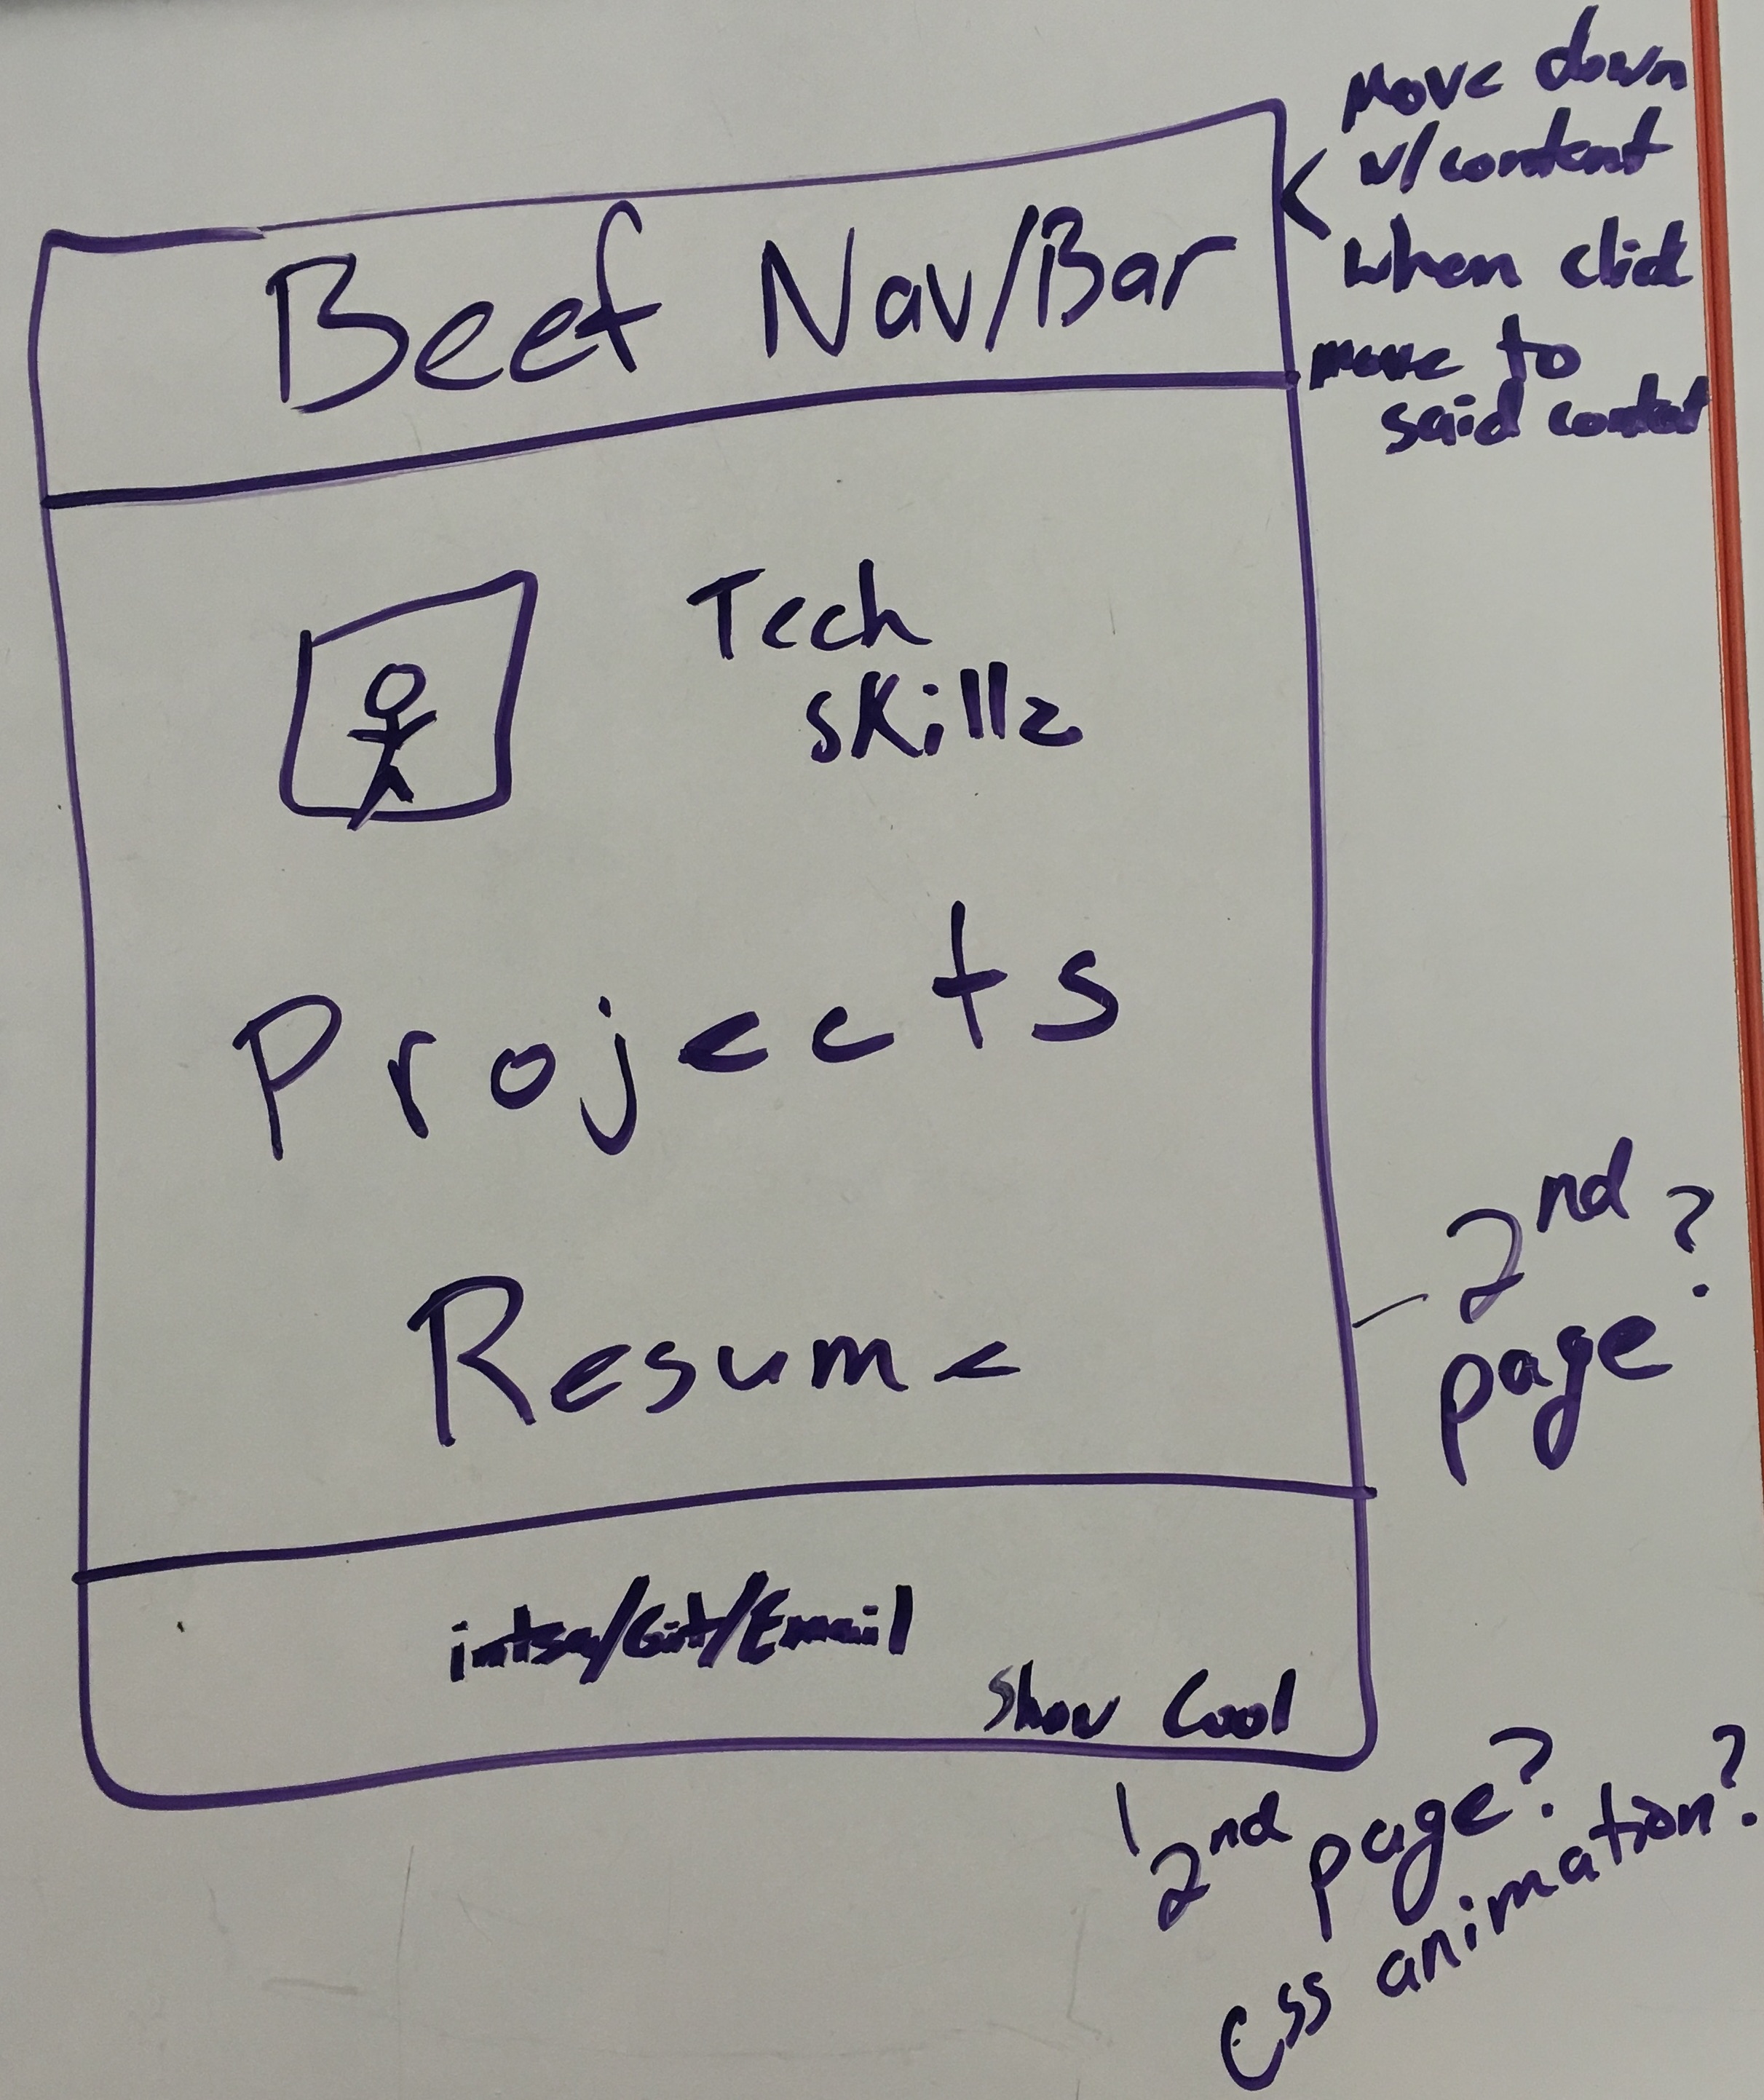 Move down
w/content
when click
move to
said content
Beef Nav/Bar
Tech
Skillz
Projects
Resume
2nd
page?
intsa/Git/Email
Show Cool
2nd page?
CSS animation?